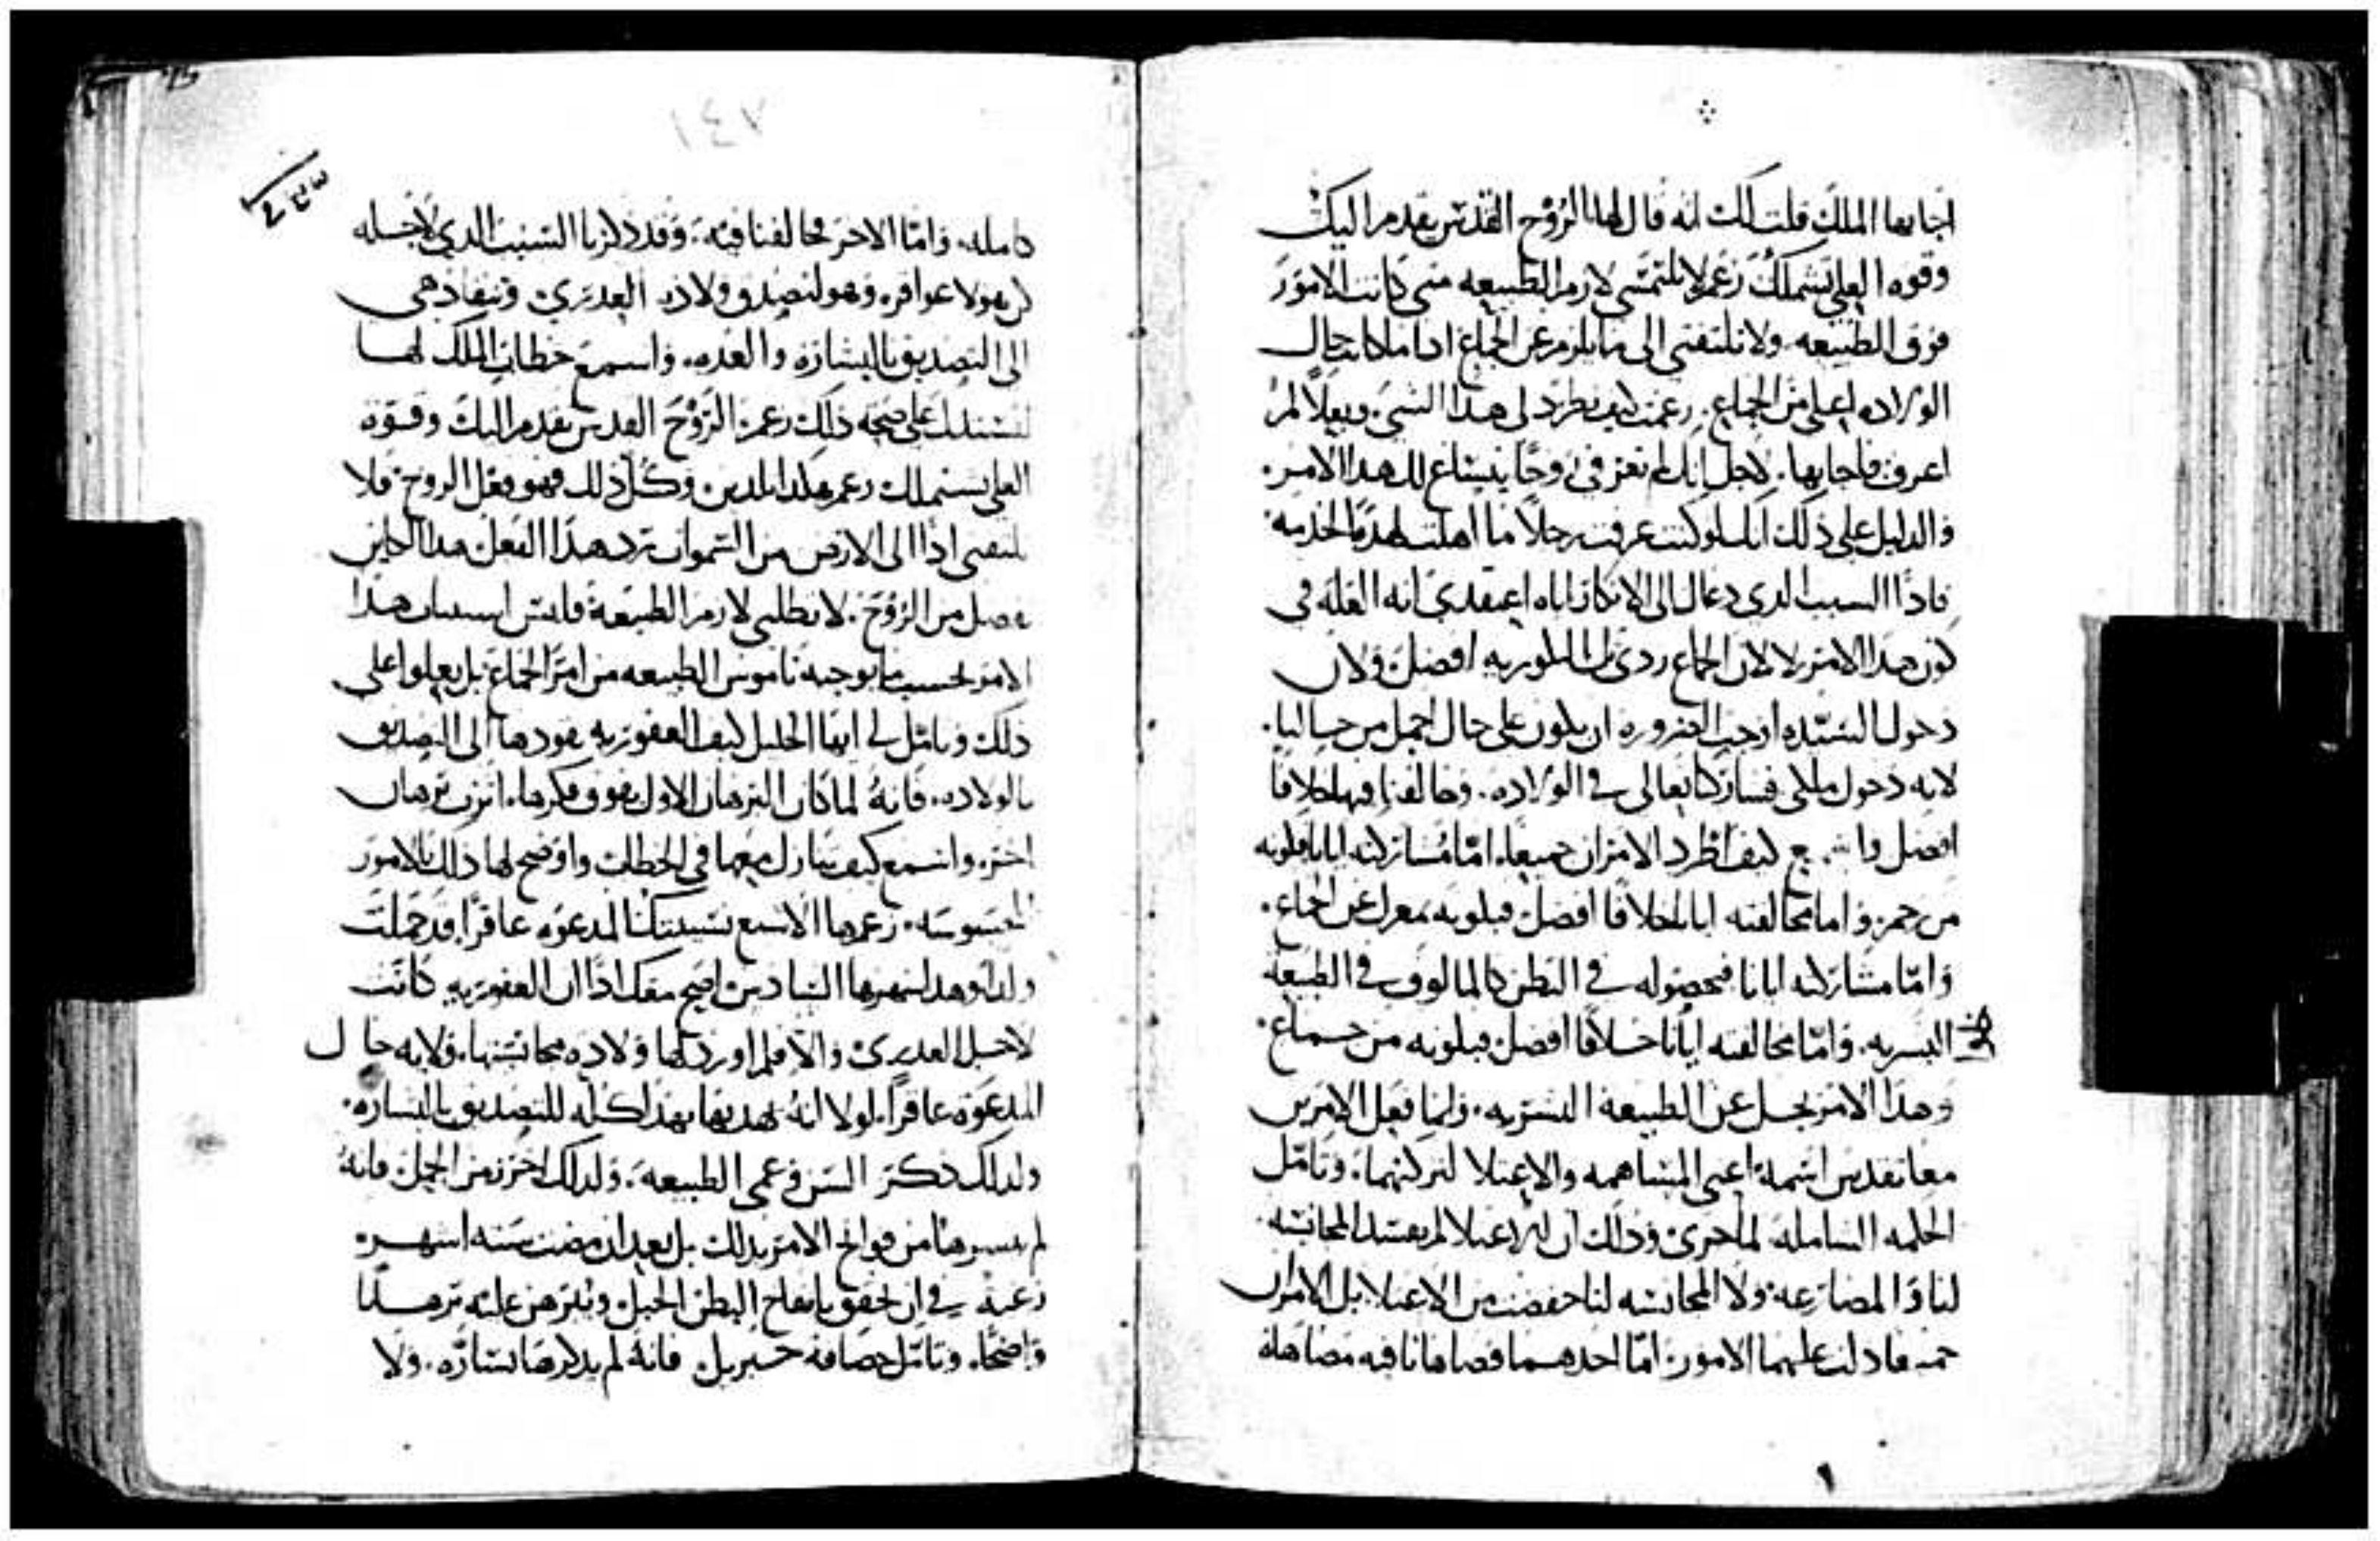 اجابها الملك قلت لك انه قال لها الروح القدس يقدم اليك
وقوه العلي تشملك زعم لا تلتمسي لازم الطبيعه متى كانت الامور
فوق الطبيعه ولا تلتفتي الى ما يلزم عن الجماع اذا ما كانت حال
الولاده اعلى من الجماع زعمت كيف يطرد لي هذا الشي وبعلا لم
اعرف فاجابها لاجل انك لم تعرفي زوجا ينساغ لك هذا الامر
والدليل على ذلك انك لو كنت عرفت رجلا ما اهلت لهذه الخدمه
فاذا السبب الذي دعاك الى الانكار اياه اعتقدي انه العله في
كون هذا الامر لا لان الجماع ردي بل البتوريه افضل ولان
دخول السيده اوجب الضروره ان يكون على حال اجمل من حالنا
لانه دخول ملكي فساركنا تعالى في الولاده وخالفنا فيها خلافا
افضل واسمع كيف اطرد الامران جميعا اما مشاركته ايانا فكونه
من حم واما مخالفته ايانا خلافا افضل فبكونه بمعزل عن الجماع
واما مشاركته ايانا فحصوله في البطن كالمالوف في الطبيعه
البشريه واما مخالفته ايانا خلافا افضل فبكونه من جماع
وهذا الامر يجل عن الطبيعه البشريه وانما فعل الامرين
معا تقدس اسمه اعني المساهمه والاعتلا لتركنهما وتامل
الحكمه الشامله لما جرى وذلك ان الاعتلا لم يفسد المجانسه
لنا والمضارعه ولا المجانسه لنا خفضت من الاعتلا بل الامران
فادلت عليهما الامور اما احدهما فضاهانا فيه مضاهاه
١٤٧
كامله واما الاخر فخالفنا فيه وقد ذكرنا السبب الذي لاجله
كن هولا عواقر وهو لتصدق ولادة العذرى وتنقاد هي
الى التصديق بالبشاره والعده واسمع خطاب الملك لها
لتستدل على صحه ذلك زعم الروح القدس يقدم اليك وقوة
العلي تشملك زعم هكذا تلدين وكل ذلك فهو فعل الروح فلا
تلتفتي اذا الى الارض من السموات ترد هذا الفعل هذا الكاين
فضل من الروح لا تطلبي لازم الطبيعة فليس استبان هذا
الامر بحسب ما يوجبه ناموس الطبيعه من امر الجماع بل يعلوا على
ذلك وتامل لي ايها الخليل كيف العقوريه يقودها الى التصديق
بالولاده فانه لما كان البرهان الاول يفوق فكرها انزل برهان
اخر واسمع كيف تنازل معها في الخطاب واوضح لها ذلك بالامور
المحسوسه زعم ها اليسبع نسيبتك المدعوه عاقرا قد حملت
ولدا وهذا شهرها السادس اصح معك اذا ان العقوريه كانت
لاجل العذرى والا فلم اورد لها ولاده مجانستها ولايه حال
المدعوه عاقرا لولا انه يهديها بهذا كله للتصديق بالبشاره
ولذلك ذكر السن وعمى الطبيعه ولذلك اخر زمن الحبل فانه
لم يبشرها من فواتح الامر بذلك بل بعد ان مضت ستة اشهر
رغبة في ان يحقق بانتفاخ البطن الحبل ويبرهن عليه برهانا
واضحا وتامل حصافة جبريل فانه لم يذكرها بساره ولا